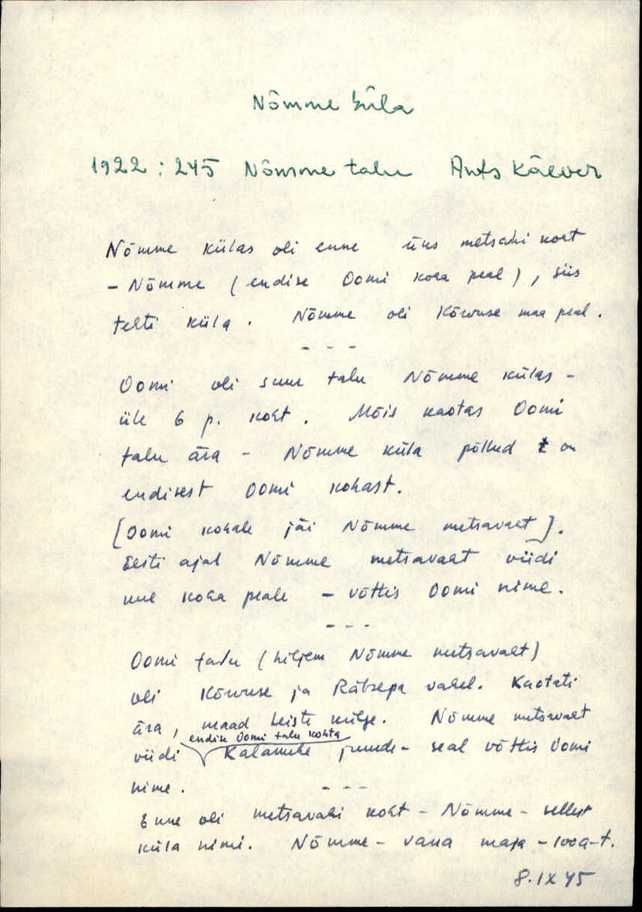 Nõmme küla
1922: 245 Nõmme talu Ants Käever
Nõmme külas oli enne üks metsavahi koht
- Nõmme (endise Oomi koha peal), siis
tehti küla. Nõmme oli Kõrvuse maa peal.
- - -
Oomi oli suur talu Nõmme külas -
üle 6 p. koht. Mõis kaotas Oomi
talu ära - Nõmme küla põllud on
endisest Oomi kohast.
[Oomi kohale jäi Nõmme metsavaht].
Eesti ajal Nõmme metsavaht viidi
uue koha peale - võttis Oomi nime.
- - -
Oomi talu (hiljem Nõmme metsavaht)
oli Kõrvuse ja Rätsepa vahel. Kaotati
ära, maad teiste külge. Nõmme metsavaht
endise Oomi talu kohta
viidi Kalamehe juurde - seal võttis Oomi
nime.
- - -
Enne oli metsavahi koht - Nõmme - sellest
küla nimi. Nõmme - vana maja - 100a-t.
8.IX 45